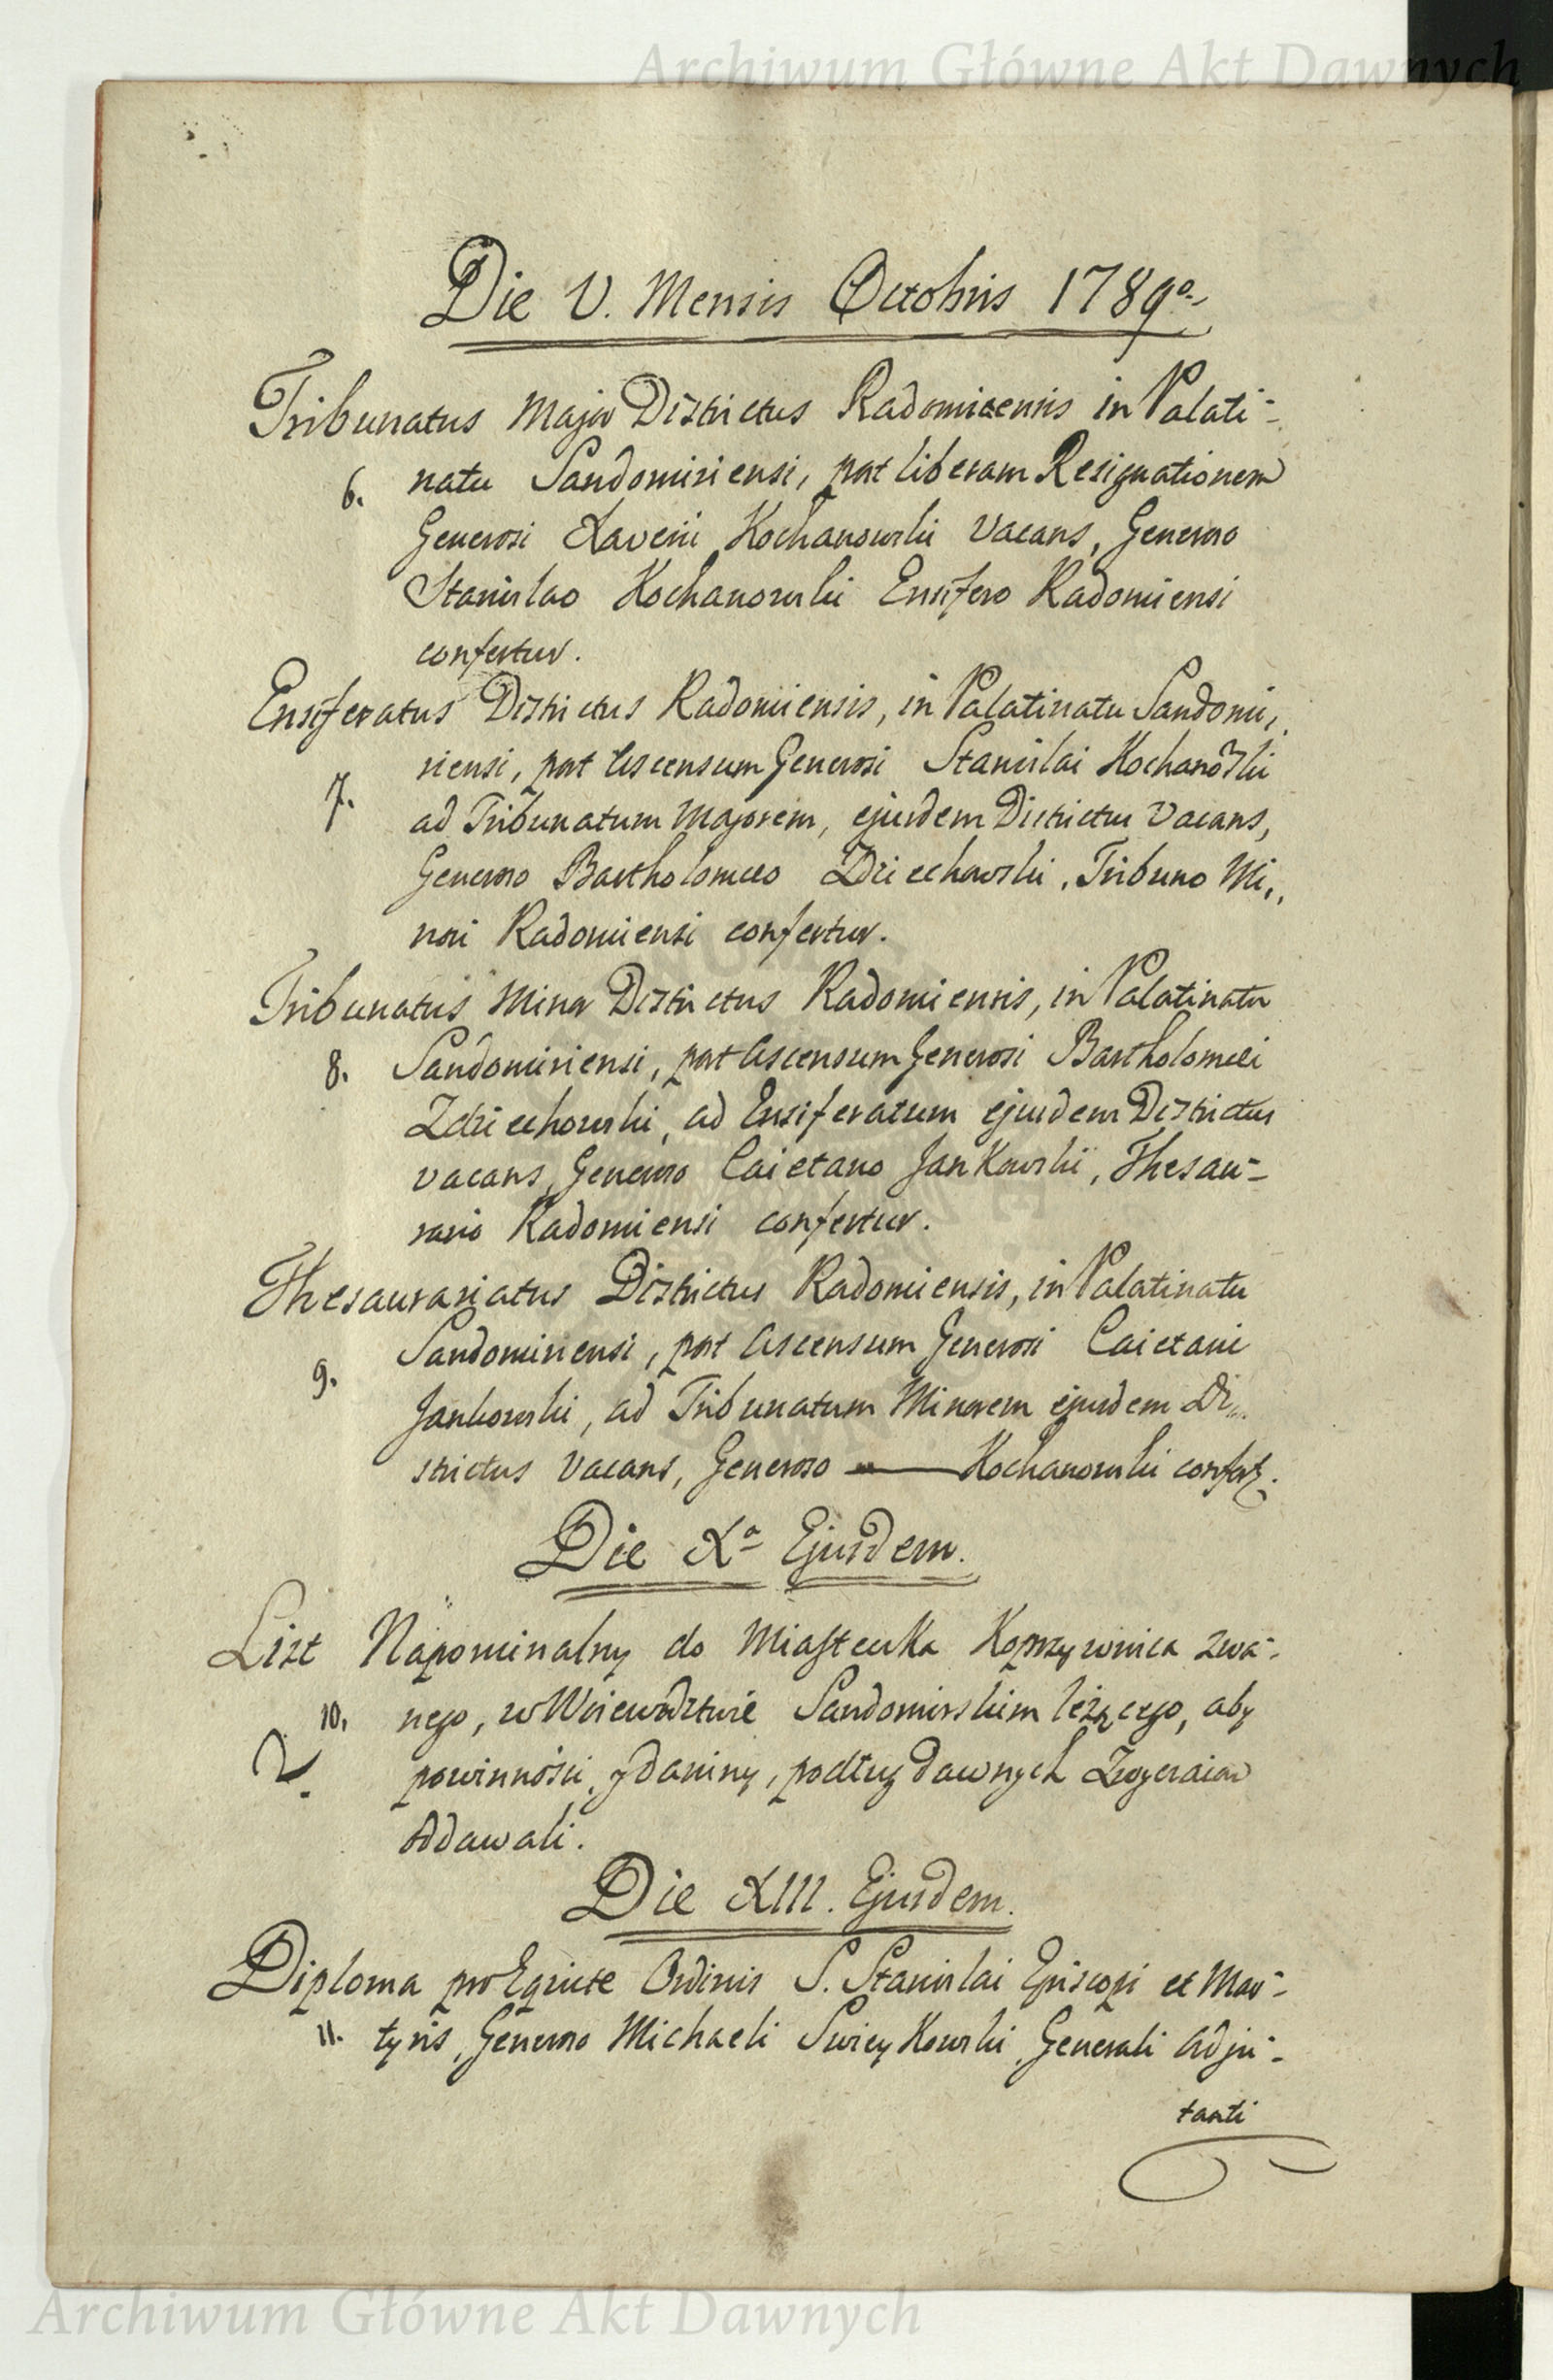 Archiwum Główne Akt Dawnych
Die V. Mensis Octobris 1789o
Tribunatus Major Districtus Radomicensis in Palati-
6. natu Sandomiriensi, post liberam Resignationem
Generosi Xaverii Kochanowski vacans, Generoso
Stanislao Kochanowski Ensifero Radomiensi
confertur.
Ensiferatus Districtus Radomiensis, in Palatinatu Sandomi,,
riensi, post Ascensum Generosi Stanislai Kochanowski
7. ad Tribunatum Majorem, ejusdem Districtus vacans,
Generoso Bartholomeo Zdziechowski, Tribuno Mi,,
nori Radomiensi confertur.
Tribunatus Minor Districtus Radomiensis, in Palatinatu
8. Sandomiriensi, post Ascensum Generosi Bartholomei
Zdziechowski, ad Ensiferatum ejusdem Districtus
vacans, Generoso Caietano Jankowski, Thesau-
rario Radomiensi confertur.
Thesaurariatus Districtus Radomiensis, in Palatinatu
Sandomiriensi, post Ascensum Generosi Caietani
9. Jankowski, ad Tribunatum Minorem ejusdem Di,,
strictus vacans, Generoso — Kochanowski confert.
Die Xa Ejusdem.
List Napominalny do Miasteczka Koprzywnica zwa-
10. nego, w Woiewodztwie Sandomirskim leżącego, aby
powinności, y daniny, podług dawnych Zwyczaiow
oddawali.
Die XIII. Ejusdem.
Diploma pro Equite Ordinis S. Stanislai Episcopi et Mar-
11. tyris, Generoso Michaeli Swieykowski, Generali Adju-
tanti
Archiwum Główne Akt Dawnych